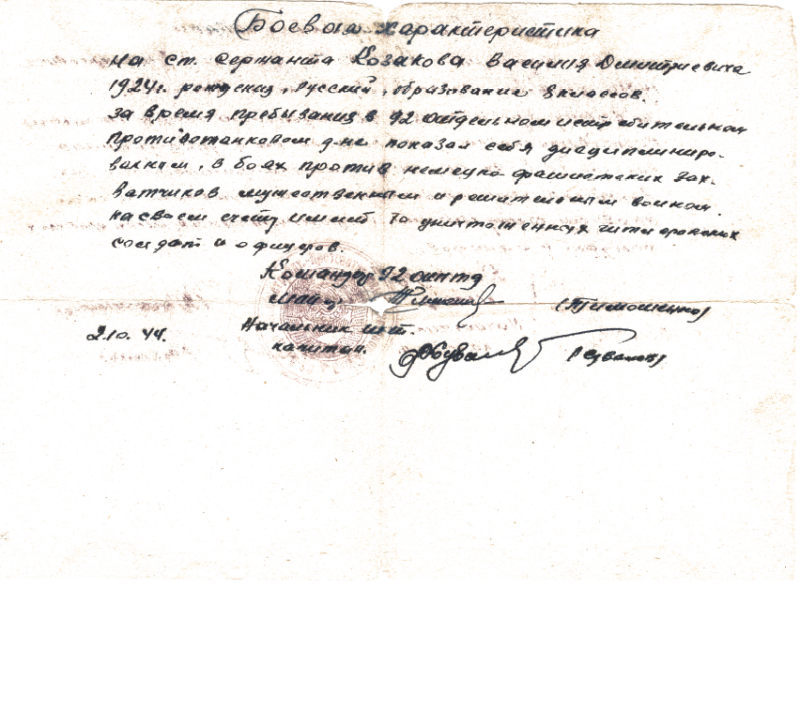 Боевая характеристика
на ст. сержанта Козакова Василия Дмитриевича
1924 г. рождения, русский, образование 8 классов.
За время пребывания в 92 отдельном истребительном
противотанковом д-не показал себя дисциплиниро-
ванным, в боях против немецко-фашистских зах-
ватчиков мужественным и решительным воином.
на своем счету имеет 70 уничтоженных гитлеровских
солдат и офицеров.
Командир 92 оиптд
майор (Тимошенко)
2.10.44. Начальник шт.
капитан.